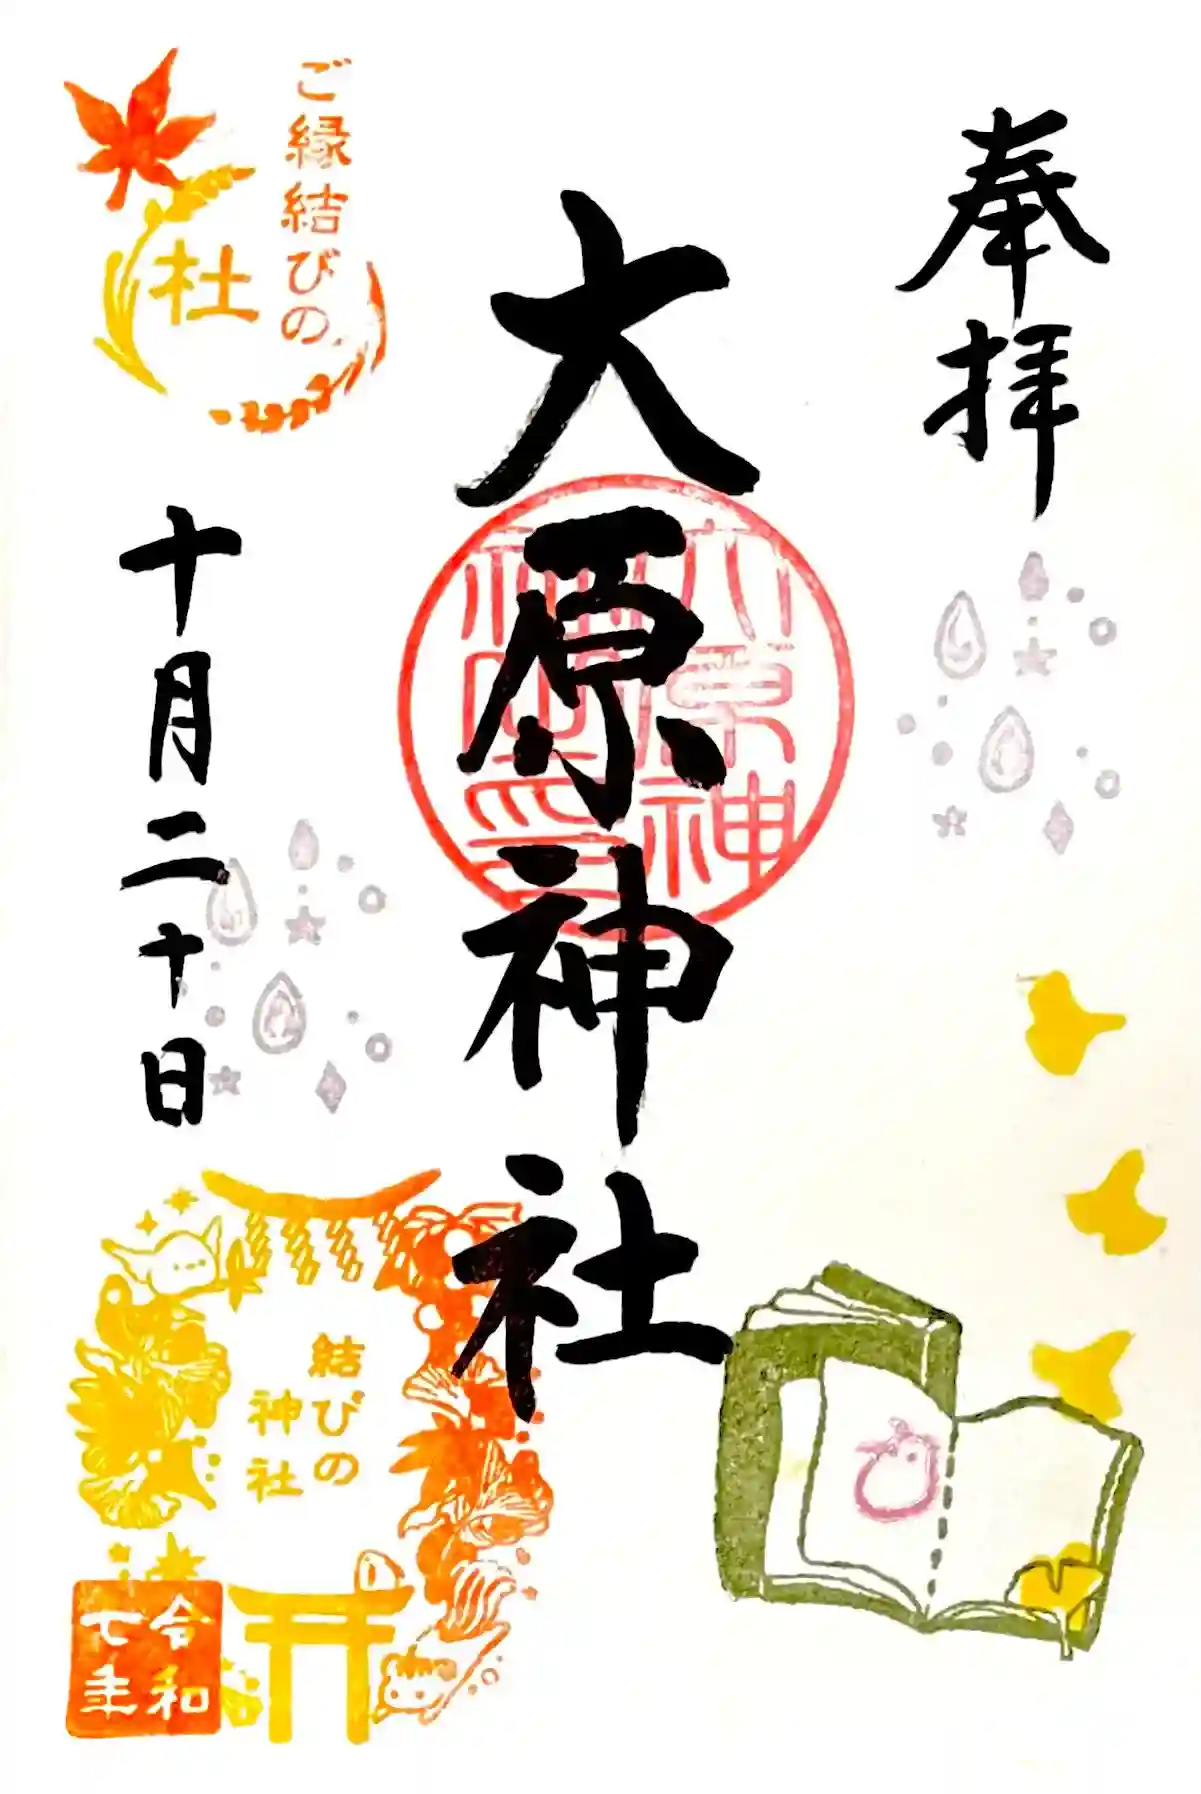 奉拝
大原神社
大原神社印
ご縁結びの
杜
十月二十日
結びの
神社
令和
七年